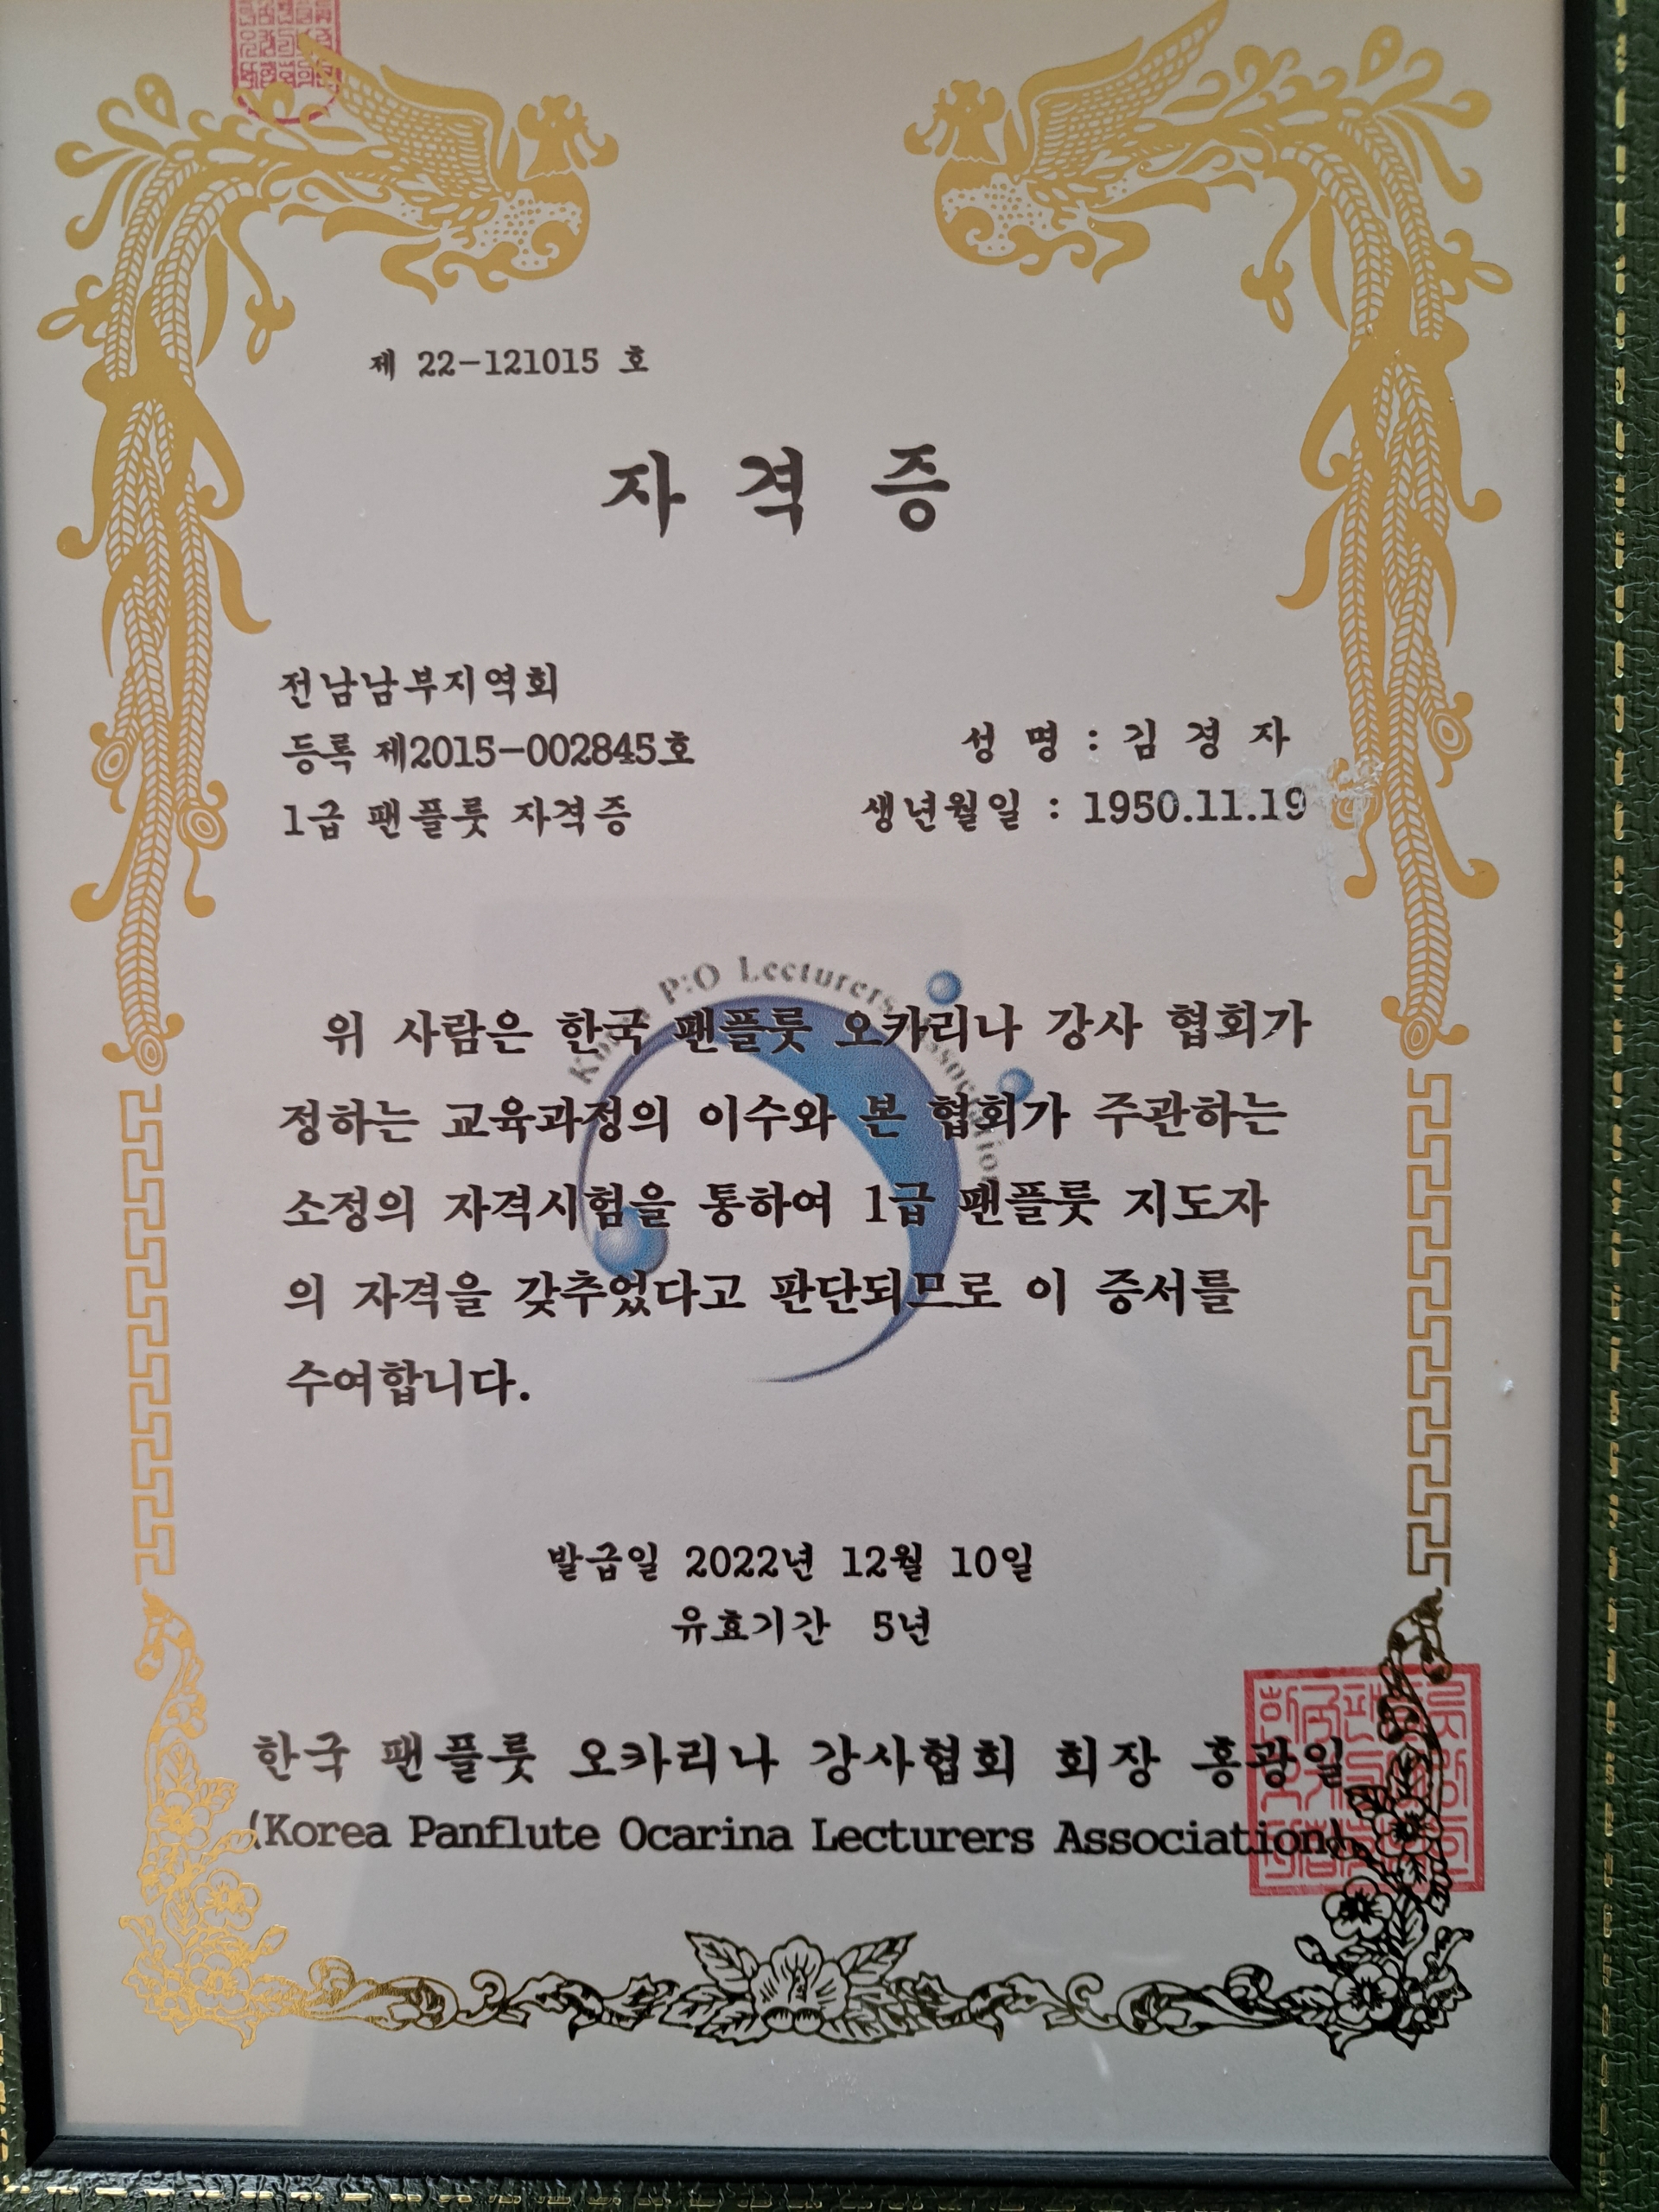 제 22-121015 호
자 격 증
전남남부지역회
등록 제2015-002845호
1급 팬플룻 자격증
성 명 : 김 경 자
생년월일 : 1950.11.19
Korea P:O Lecturers Association
위 사람은 한국 팬플룻 오카리나 강사 협회가
정하는 교육과정의 이수와 본 협회가 주관하는
소정의 자격시험을 통하여 1급 팬플룻 지도자
의 자격을 갖추었다고 판단되므로 이 증서를
수여합니다.
발급일 2022년 12월 10일
유효기간 5년
한국 팬플룻 오카리나 강사협회 회장 홍광일
(Korea Panflute Ocarina Lecturers Association)